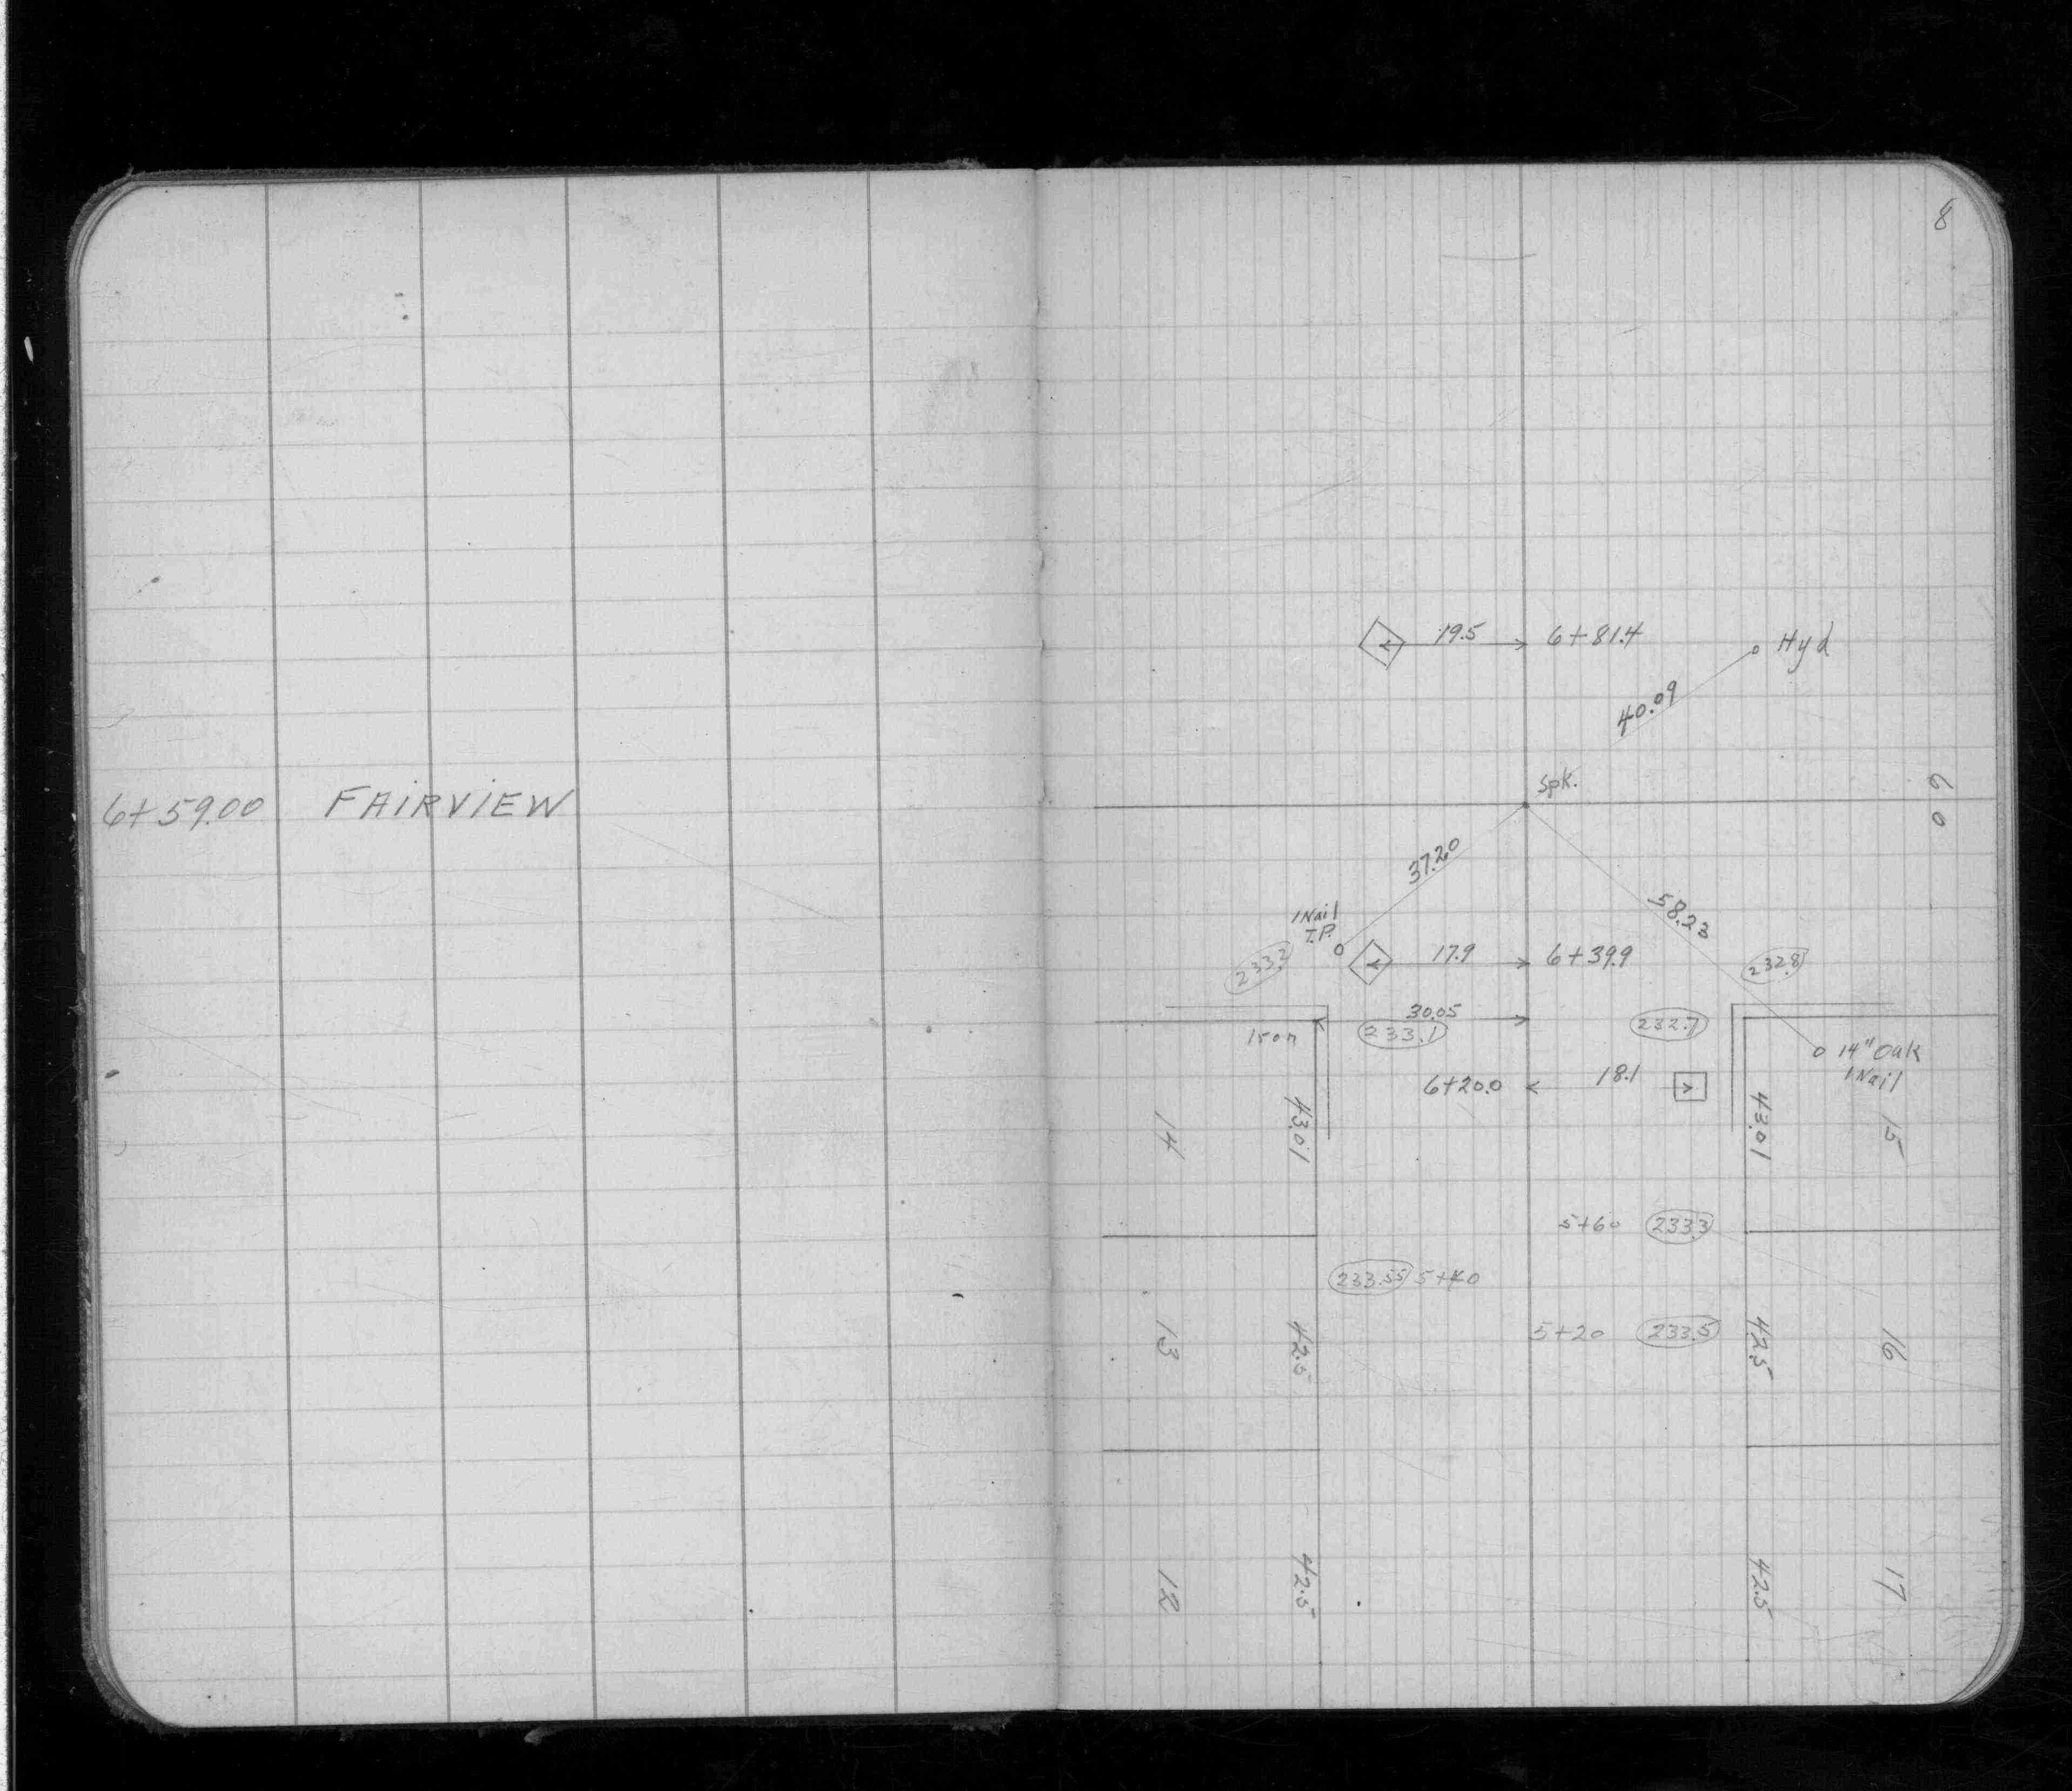 8
19.5 6+81.4 Hyd
40.09
Spk.
60
6+59.00 FAIRVIEW
37.20
58.23
1 Nail
T.P.
233.2 17.9 6+39.9 232.8
30.05
Iron 233.1 232.7
14" Oak
1 Nail
6+20.0 18.1
14 43.01 43.01 15
5+60 233.3
233.55 5+40
5+20 233.5
13 42.5 42.5 16
12 42.5 42.5 17